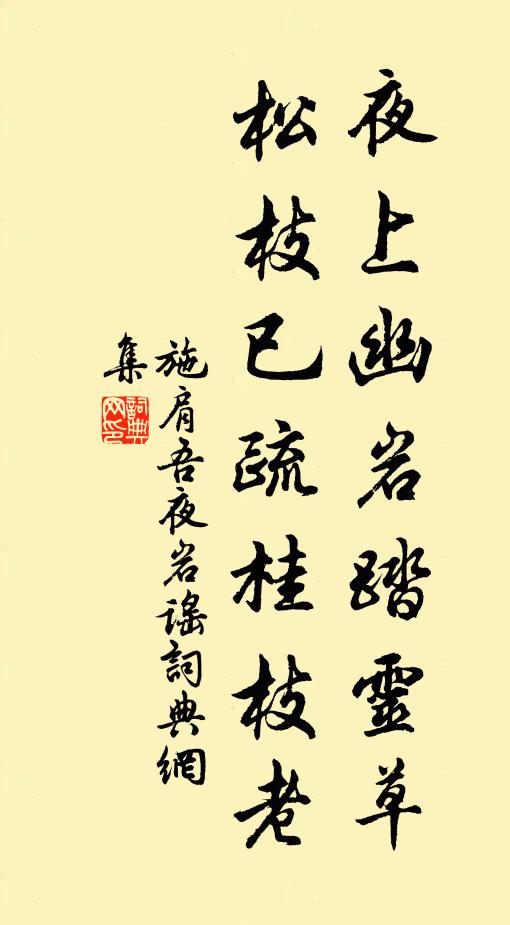 夜上幽岩踏靈草
松枝已疏桂枝老
施肩吾夜岩謠詞典網
集
詞典
网印